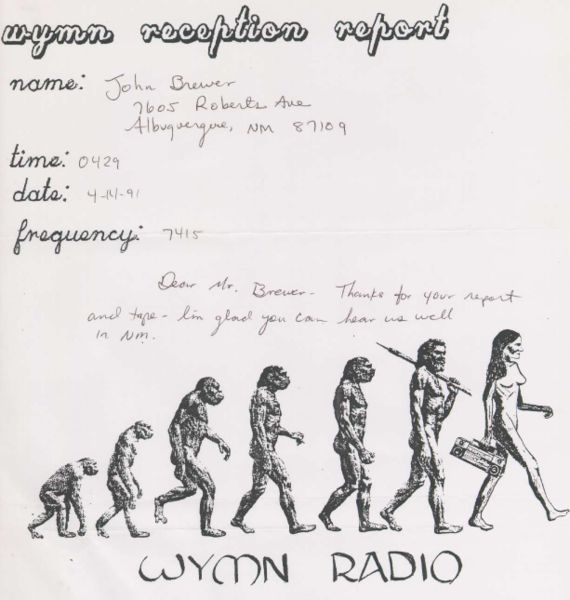 wymn reception report
name: John Brewer
7605 Roberts Ave
Albuquerque, NM 87109
time: 0429
date: 4-14-91
frequency: 7415
Dear Mr. Brewer- Thanks for your report
and tape- I'm glad you can hear us well
in NM.
WYMN RADIO